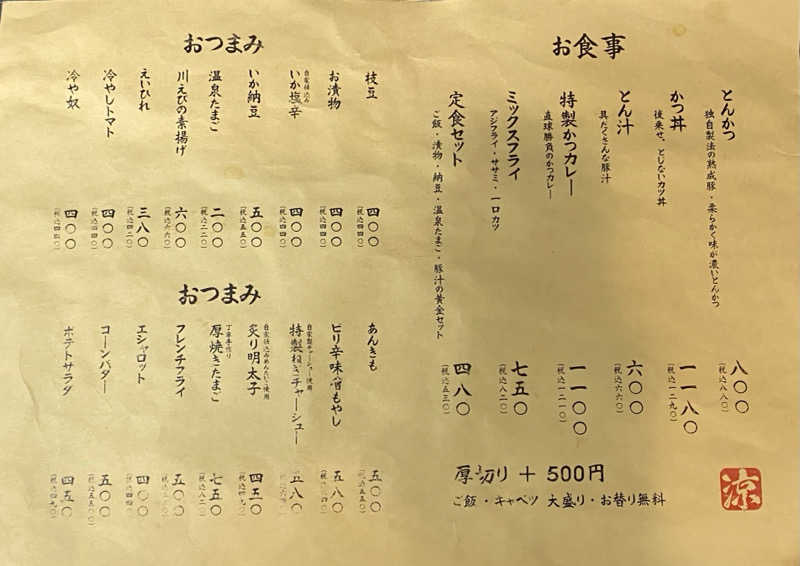 お食事
とんかつ
独自製法の熟成豚・柔らかく味が濃いとんかつ
八〇〇
(税込八八〇)
かつ丼
後乗せ、とじないカツ丼
一一八〇
(税込一二九〇)
とん汁
具だくさんな豚汁
六〇〇
(税込六六〇)
特製かつカレー
直球勝負のかつカレー
一一〇〇
(税込一二一〇)
ミックスフライ
アジフライ・ササミ・一口カツ
七五〇
(税込八二〇)
定食セット
ご飯・漬物・納豆・温泉たまご・豚汁の黄金セット
四八〇
(税込五三〇)
厚切り + 500円
ご飯・キャベツ 大盛り・お替り無料
涼
おつまみ
枝豆
四〇〇
(税込四四〇)
お漬物
四〇〇
(税込四四〇)
自家仕込み
いか塩辛
四〇〇
(税込四四〇)
いか納豆
五〇〇
(税込五五〇)
温泉たまご
二〇〇
(税込二二〇)
川えびの素揚げ
六〇〇
(税込六六〇)
えいひれ
三八〇
(税込四二〇)
冷やしトマト
四〇〇
(税込四四〇)
冷や奴
四〇〇
(税込四四〇)
おつまみ
あんきも
五〇〇
(税込五五〇)
ピリ辛味噌もやし
五八〇
自家製チャーシュー使用
特製ねぎチャーシュー
五八〇
自家仕込みめんたいこ使用
炙り明太子
四五〇
丁寧手作り
厚焼きたまご
七五〇
(税込八二〇)
フレンチフライ
五〇〇
エシャロット
四〇〇
コーンバター
五〇〇
(税込五五〇)
ポテトサラダ
四五〇
(税込四九〇)